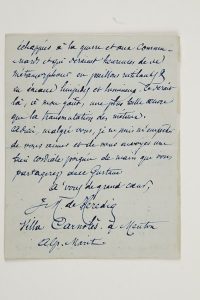 échappés à la guerre et aux Commu-
nards et qui seraient heureuses de se
métamorphoser en
en encore et hommes. Ce serait
là, à mon goût, une plus belle œuvre
que la transmutation des métaux.
malgré vous, je ne puis m'empêcher
de vous aimer et de vous envoyer une
bien cordiale poignée de main que vous
partagerez avec Gustave
à vous de grand cœur,
J M de Heredia
Villa Carnolès, à Menton
Alp. Marit.